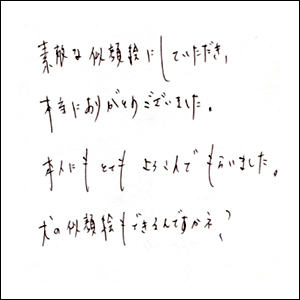 素敵な似顔絵にしていただき、
本当にありがとうございました。
本人にも とても よろこんで もらいました。
犬の似顔絵もできるんですかネ?